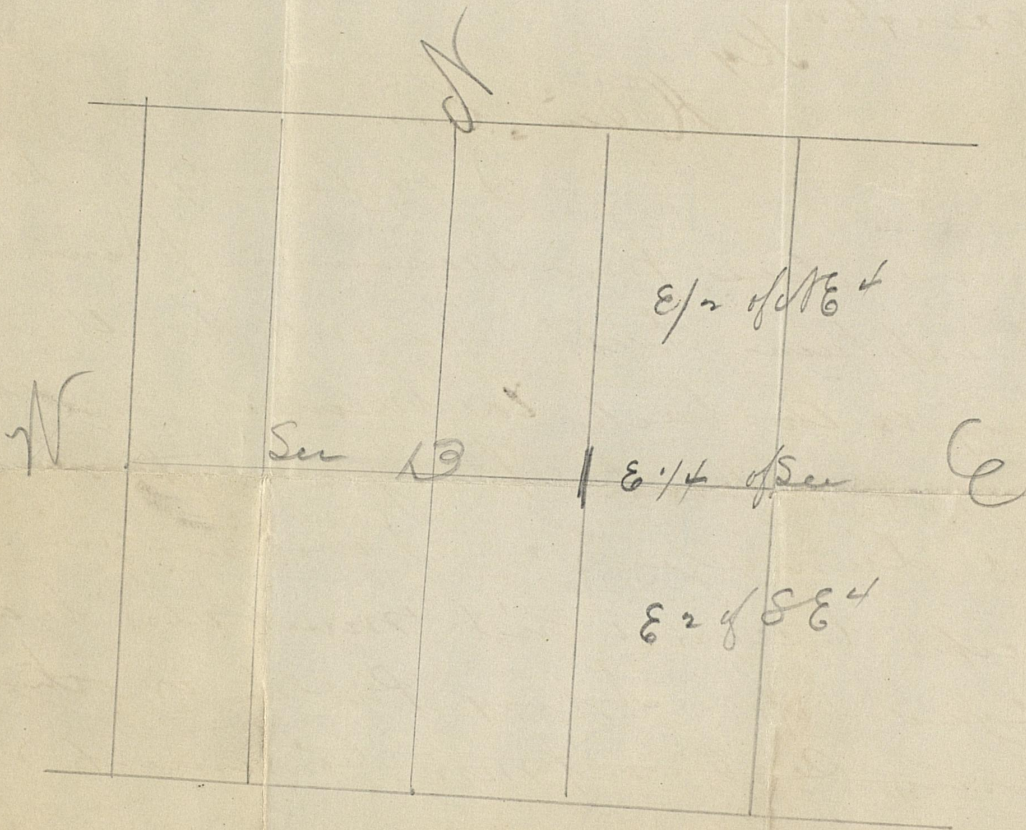 N
E/2 of NE 4
W
Sec 13
E 1/4 of Sec
E
E 2 of SE 4